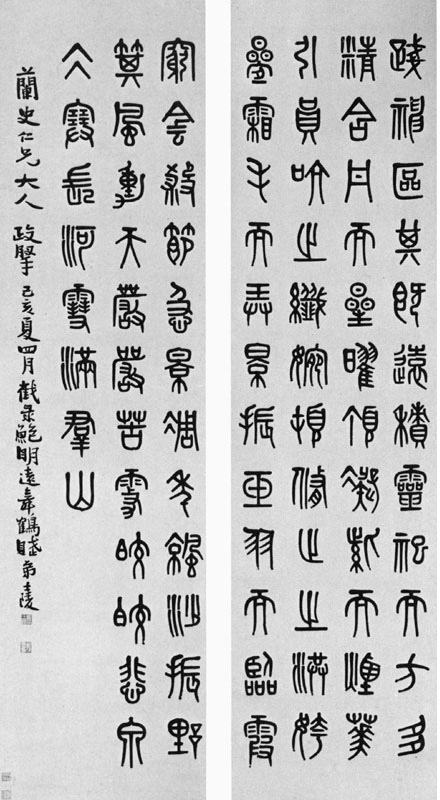 踐神區其既遠積靈祀而方多
清含丹而星曜頂凝紫而煙華
引員吭之纖婉頓脩止之洪姱
疊霜毛而弄景振玉羽而臨霞
窮侌殺節急景凋年沙振野
箕風動天嚴嚴苦霧皎皎悲泉
仌塞長河雪滿羣山
蘭史仁兄大人 政 己亥夏四月截录鮑明遠舞鶴賦弟陵